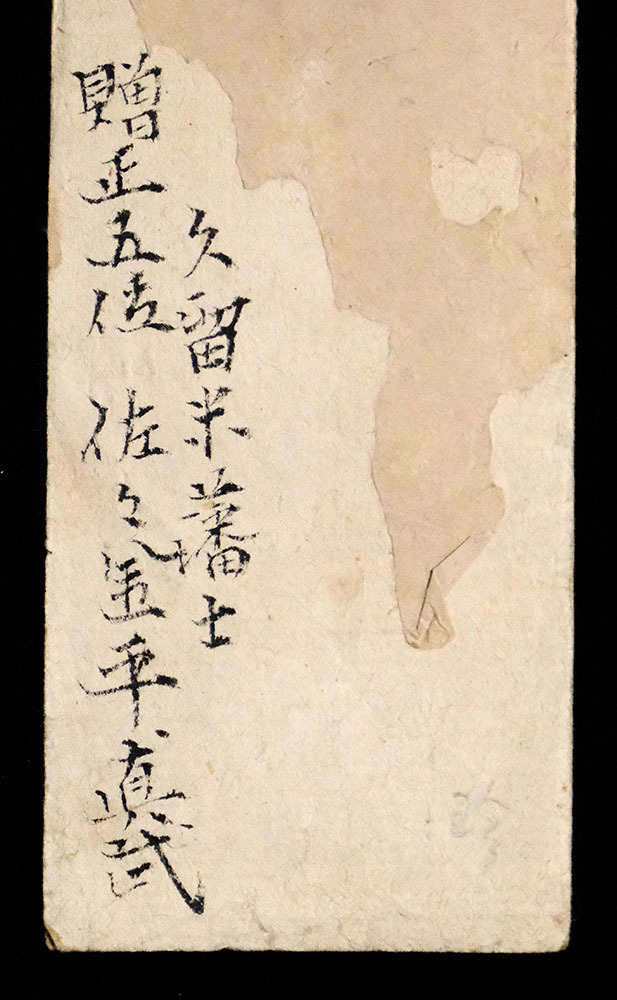 久留米藩士
贈正五位 佐々金平真武